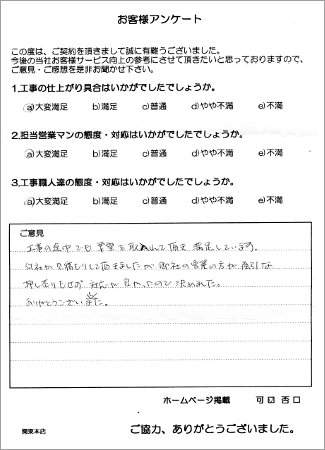 お客様アンケート
この度は、ご契約を頂きまして誠に有難うございました。
今後の当社お客様サービス向上の参考にさせて頂きたいと思っておりますので、
ご意見・ご感想を是非お聞かせ下さい。
1.工事の仕上がり具合はいかがでしたでしょうか。
a)大変満足 b)満足 c)普通 d)やや不満 e)不満
2.担当営業マンの態度・対応はいかがでしたでしょうか。
a)大変満足 b)満足 c)普通 d)やや不満 e)不満
3.工事職人達の態度・対応はいかがでしたでしょうか。
a)大変満足 b)満足 c)普通 d)やや不満 e)不満
ご意見
工事の途中でも要望を取り入れて頂き満足しています。
他社から見積もりして頂きましたが御社の営業の方が強引な
押し売りもせず対応が良かったので決めました。
ありがとうございました。
ホームページ掲載 可 否
関東本店
ご協力、ありがとうございました。